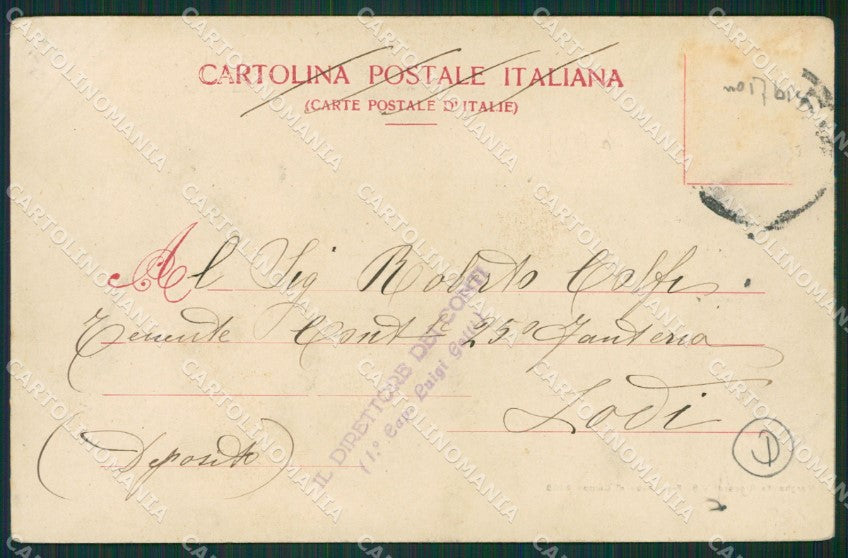 CARTOLINA POSTALE ITALIANA
(CARTE POSTALE D'ITALIE)
Al Sig Roberto Coffi
Tenente Cont. 25º Fanteria
Lodi
(Deposito)
IL DIRETTORE DEI CONTI
(1.º Cap. Luigi
D
CARTOLINOMANIA